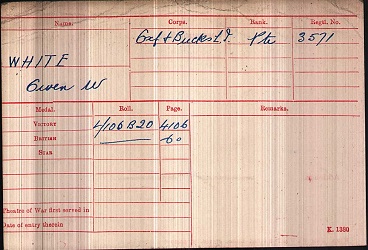 Name. Corps. Rank. Regtl. No.
WHITE Oxf & Bucks L.I. Pte 3571
Owen W
Medal. Roll. Page. Remarks.
VICTORY 4/106 B20 4106
BRITISH do
STAR
Theatre of War first served in
Date of entry therein
K. 1380